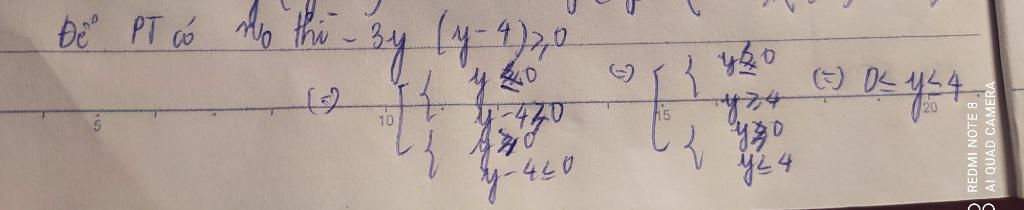 Để PT có n₀ thì - 3y (y-4) ≥ 0
(=) [ { y ≤ 0 (=) [ { y ≤ 0 (=) 0 ≤ y ≤ 4
y-4 ≥ 0 y ≥ 4
{ y ≥ 0 { y ≥ 0
y-4 ≤ 0 y ≤ 4
5 10 15 20
REDMI NOTE 8
AI QUAD CAMERA